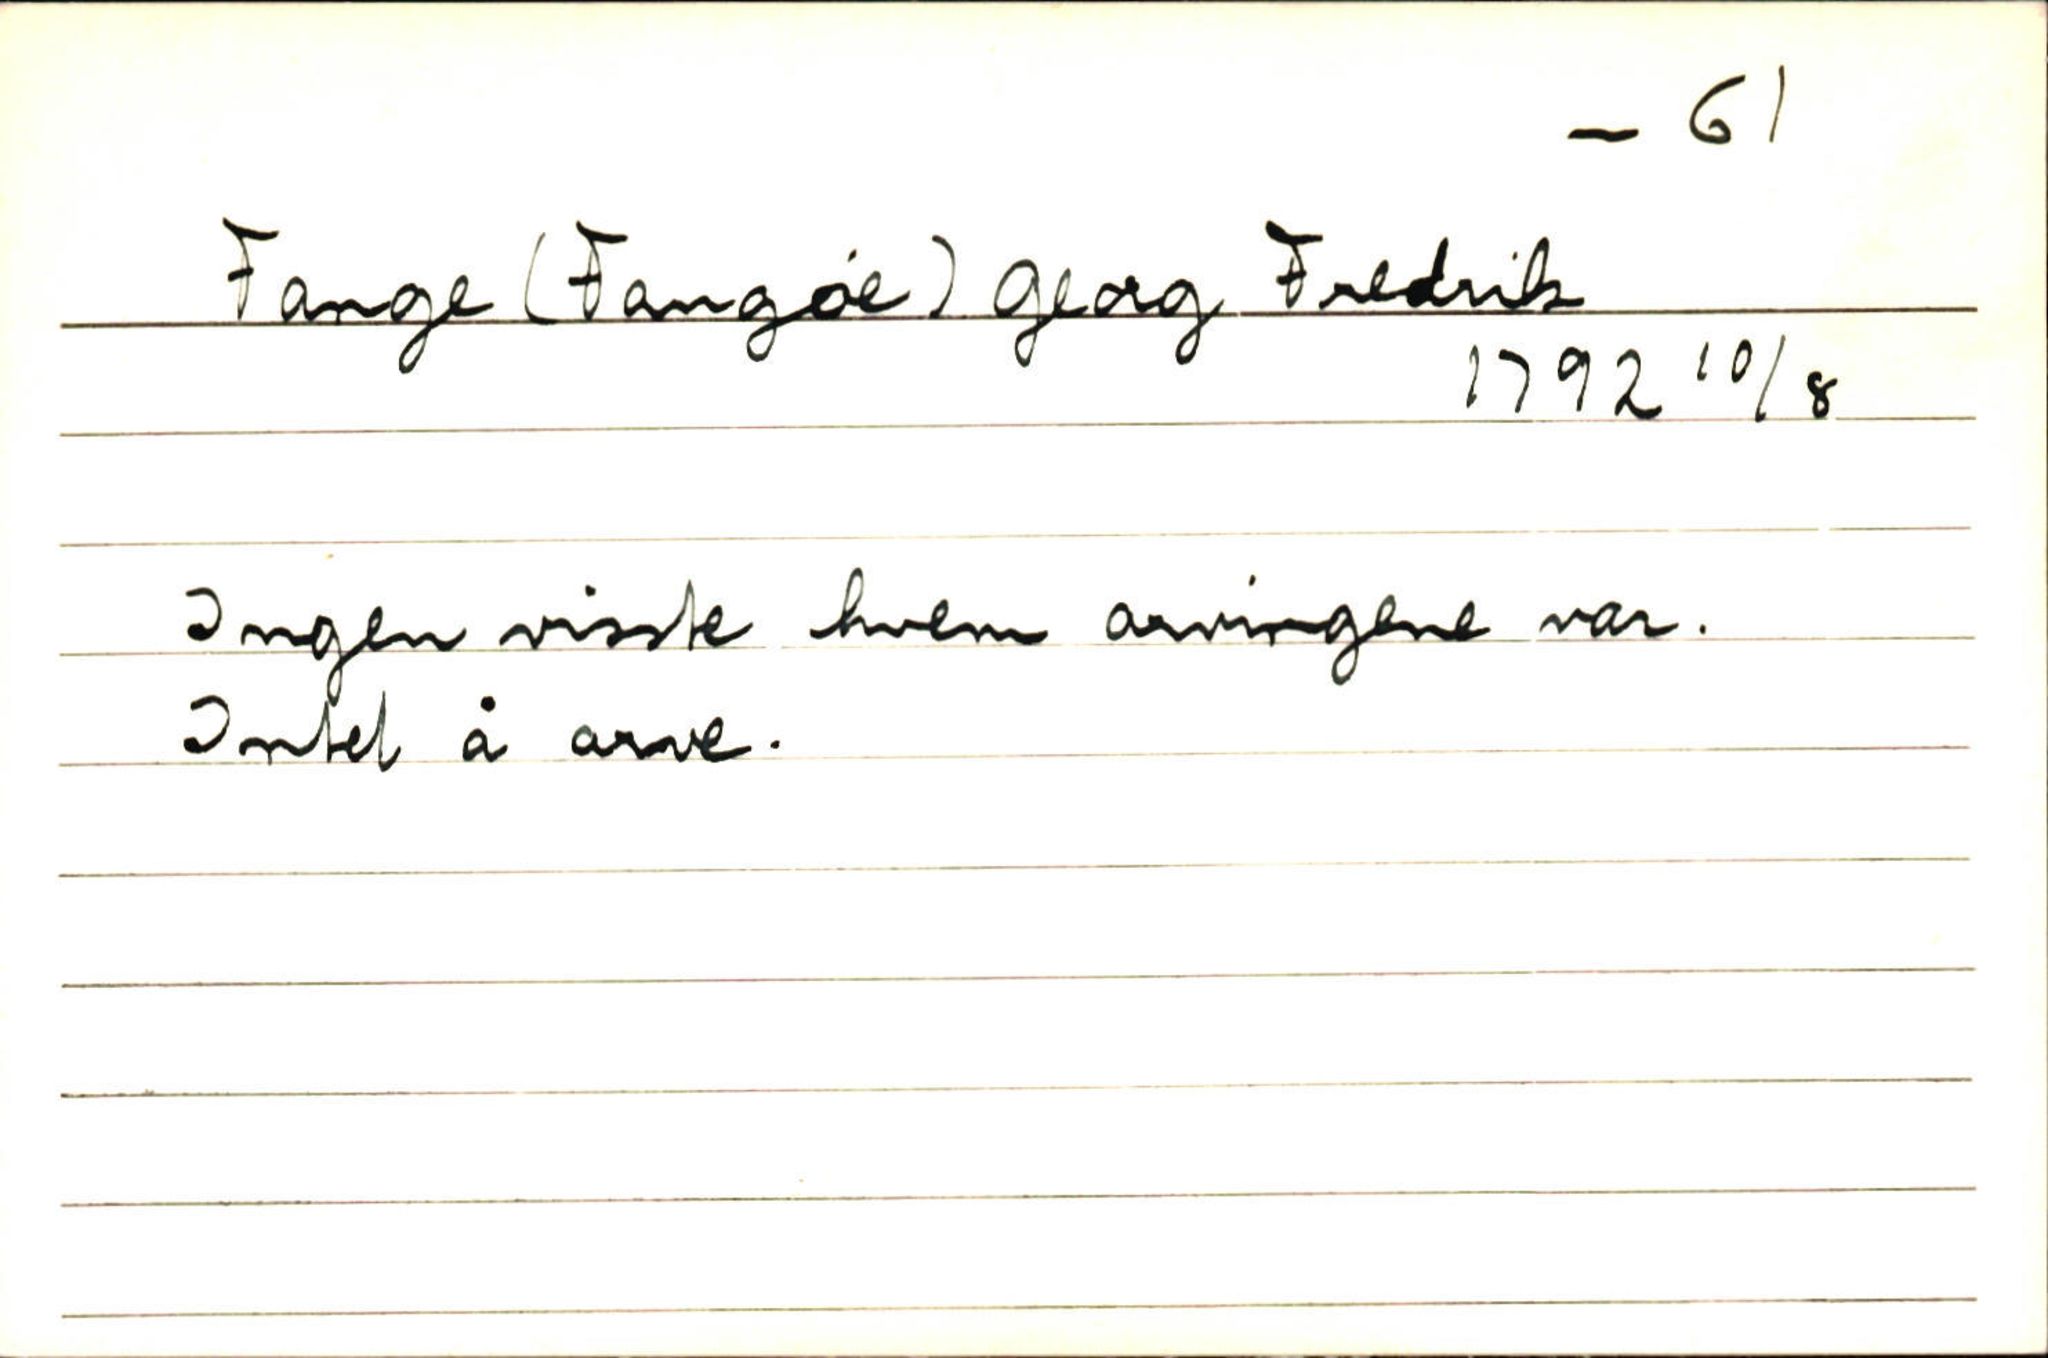 – 61
Fange (Fangøe) Georg Fredrik
1792 10/8
Ingen visste hvem arvingene var.
Intet å arve.